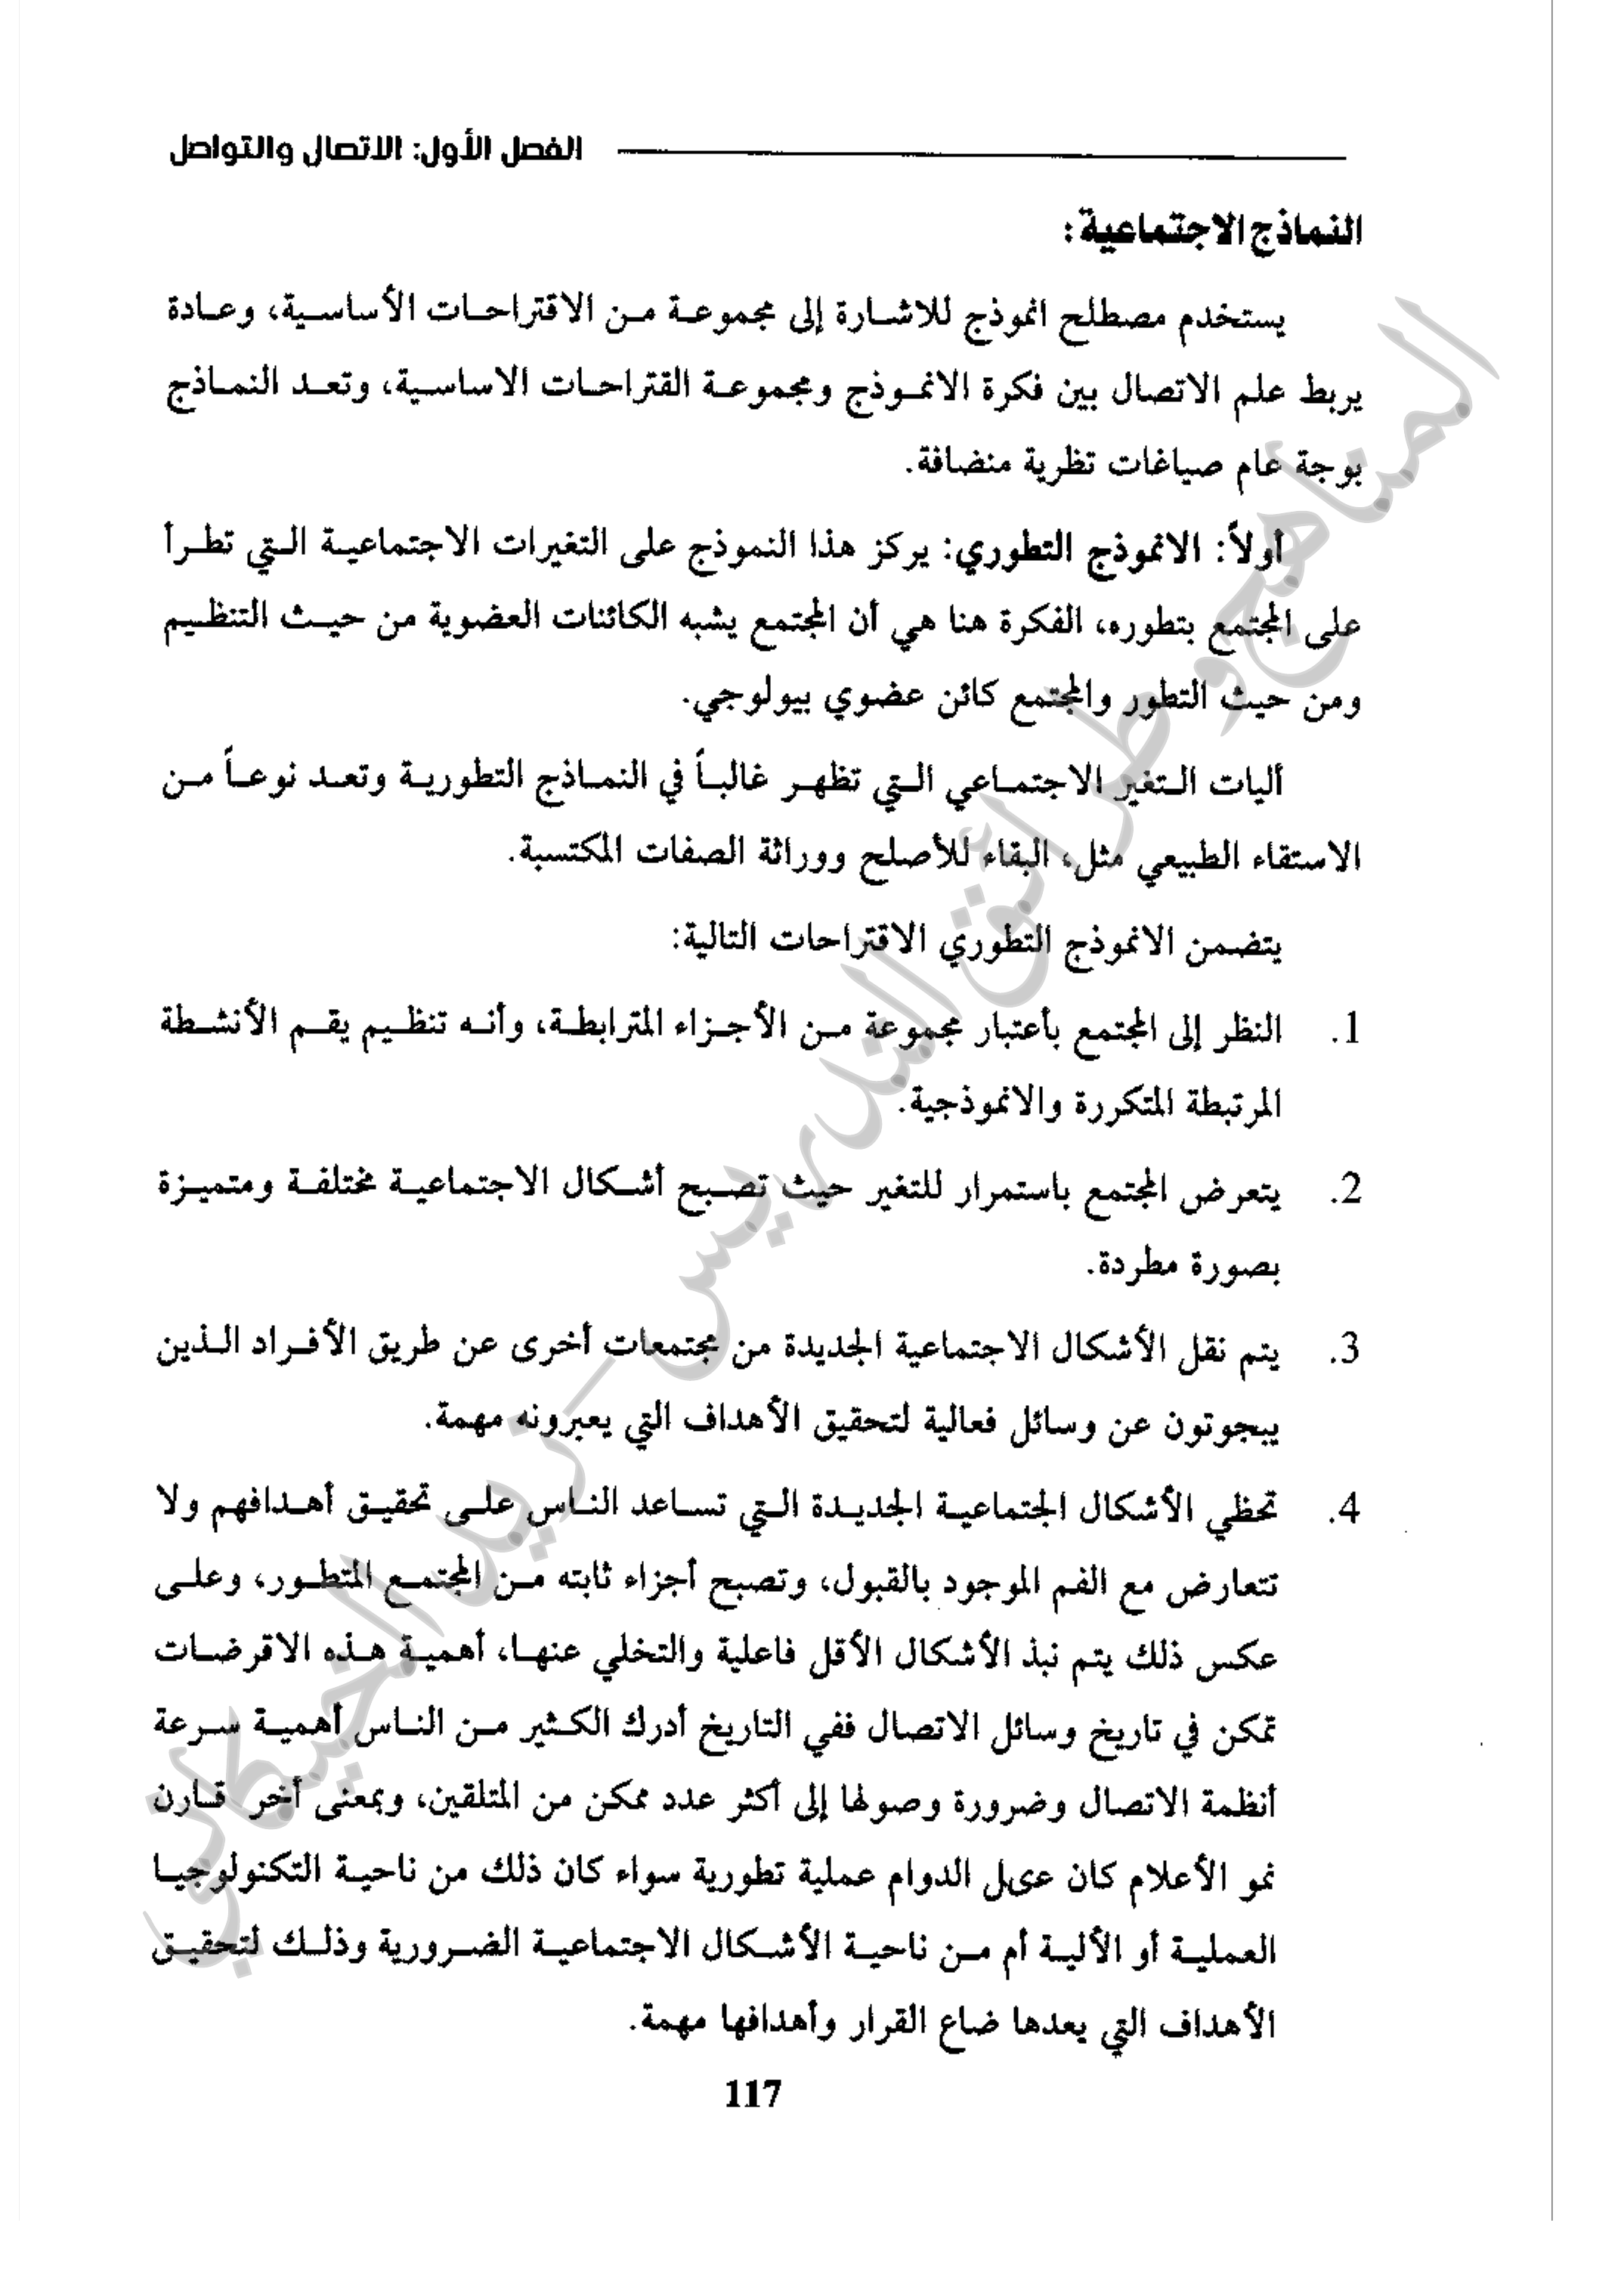 الفصل الأول: الاتصال والتواصل
النماذج الاجتماعية:
يستخدم مصطلح انموذج للاشارة إلى مجموعة من الاقتراحات الأساسية، وعادة
يربط علم الاتصال بين فكرة الانموذج ومجموعة القتراحات الاساسية، وتعد النماذج
بوجة عام صياغات تظرية منضافة.
أولاً: الانموذج التطوري: يركز هذا النموذج على التغيرات الاجتماعية التي تطرأ
على المجتمع بتطوره، الفكرة هنا هي أن المجتمع يشبه الكائنات العضوية من حيث التنظيم
ومن حيث التطور والمجتمع كائن عضوي بيولوجي.
أليات التغير الاجتماعي التي تظهر غالباً في النماذج التطورية وتعد نوعاً من
الاستقاء الطبيعي مثل، البقاء للأصلح ووراثة الصفات المكتسبة.
يتضمن الانموذج التطوري الاقتراحات التالية:
1. النظر إلى المجتمع بأعتبار مجموعة من الأجزاء المترابطة، وأنه تنظيم يقم الأنشطة
المرتبطة المتكررة والانموذجية.
2. يتعرض المجتمع باستمرار للتغير حيث تصبح أشكال الاجتماعية مختلفة ومتميزة
بصورة مطردة.
3. يتم نقل الأشكال الاجتماعية الجديدة من مجتمعات أخرى عن طريق الأفراد الذين
يبجوتون عن وسائل فعالية لتحقيق الأهداف التي يعبرونه مهمة.
4. تحظي الأشكال الجتماعية الجديدة التي تساعد الناس على تحقيق أهدافهم ولا
تتعارض مع الفم الموجود بالقبول، وتصبح أجزاء ثابته من المجتمع المتطور، وعلى
عكس ذلك يتم نبذ الأشكال الأقل فاعلية والتخلي عنها، أهمية هذه الاقرضات
تمكن في تاريخ وسائل الاتصال ففي التاريخ أدرك الكثير من الناس أهمية سرعة
أنظمة الاتصال وضرورة وصولها إلى أكثر عدد ممكن من المتلقين، وبمعنى أخر قارن
نمو الأعلام كان عىل الدوام عملية تطورية سواء كان ذلك من ناحية التكنولوجيا
العملية أو الألية أم من ناحية الأشكال الاجتماعية الضرورية وذلك لتحقيق
الأهداف التي يعدها ضاع القرار وأهدافها مهمة.
117
المناهج وطرائق التدريس - زيد الخيكاني